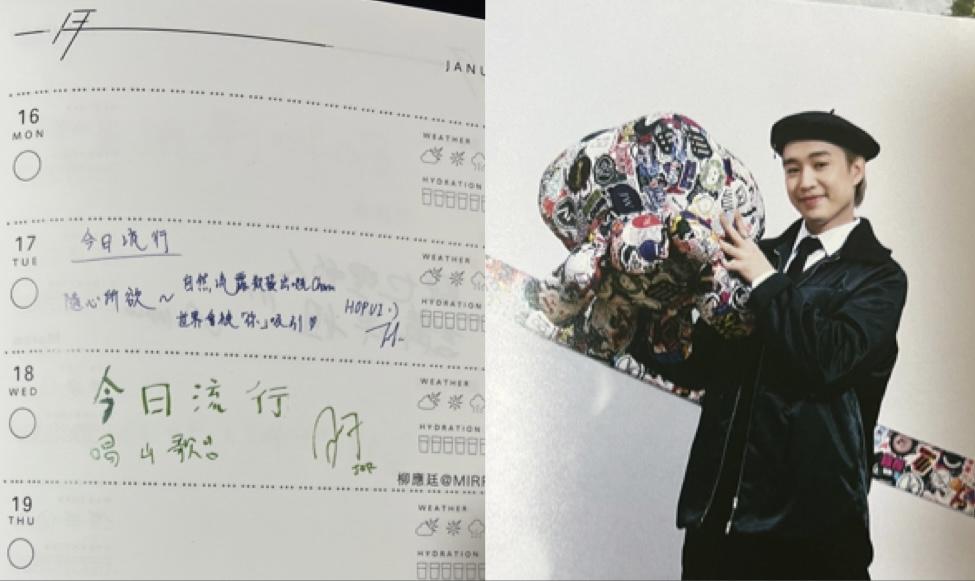 一月
JANU
16
MON
WEATHER
HYDRATION
17
TUE
今日流行
隨心所欲~
自然流露散發出嘅Charm
世界會被「你」吸引
HOPUI :)
WEATHER
HYDRATION
18
WED
今日流行
唱山歌
JER
WEATHER
HYDRATION
柳應廷@MIRR
19
THU
WEATHER
HYDRATION